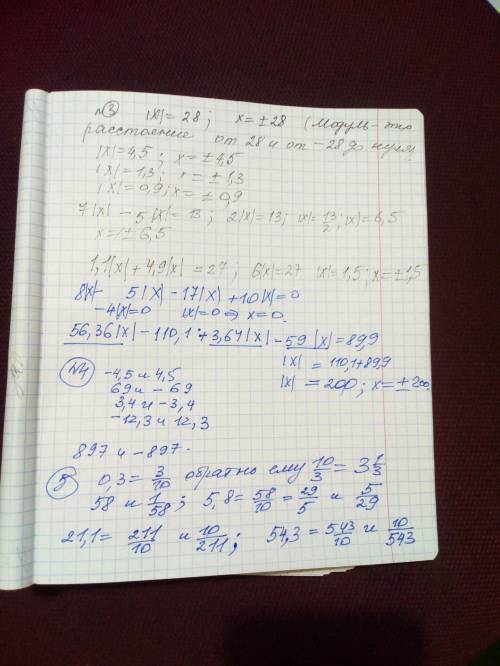 №3 |x| = 28; x = ±28 (Модуль - это
расстояние от 28 и от -28 до нуля)
|x| = 4,5; x = ±4,5
|x| = 1,3; x = ±1,3
|x| = 0,9; x = ±0,9
7|x| - 5|x| = 13; 2|x| = 13; |x| = 13/2; |x| = 6,5
x = ±6,5
1,1|x| + 4,9|x| = 27; 6|x| = 27 |x| = 1,5; x = ±1,5
8|x| - 5|x| - 17|x| + 10|x| = 0
-4|x| = 0 |x| = 0 => x = 0.
56,36|x| - 110,1 + 3,64|x| - 59|x| = 89,9
|x| = 110,1 + 89,9
|x| = 200; x = ±200.
№4 -4,5 и 4,5
69 и -69
3,4 и -3,4
-12,3 и 12,3
897 и -897.
5 0,3 = 3/10 обратно ему 10/3 = 3 1/3
58 и 1/58; 5,8 = 58/10 = 29/5 и 5/29
21,1 = 211/10 и 10/211; 54,3 = 543/10 и 10/543